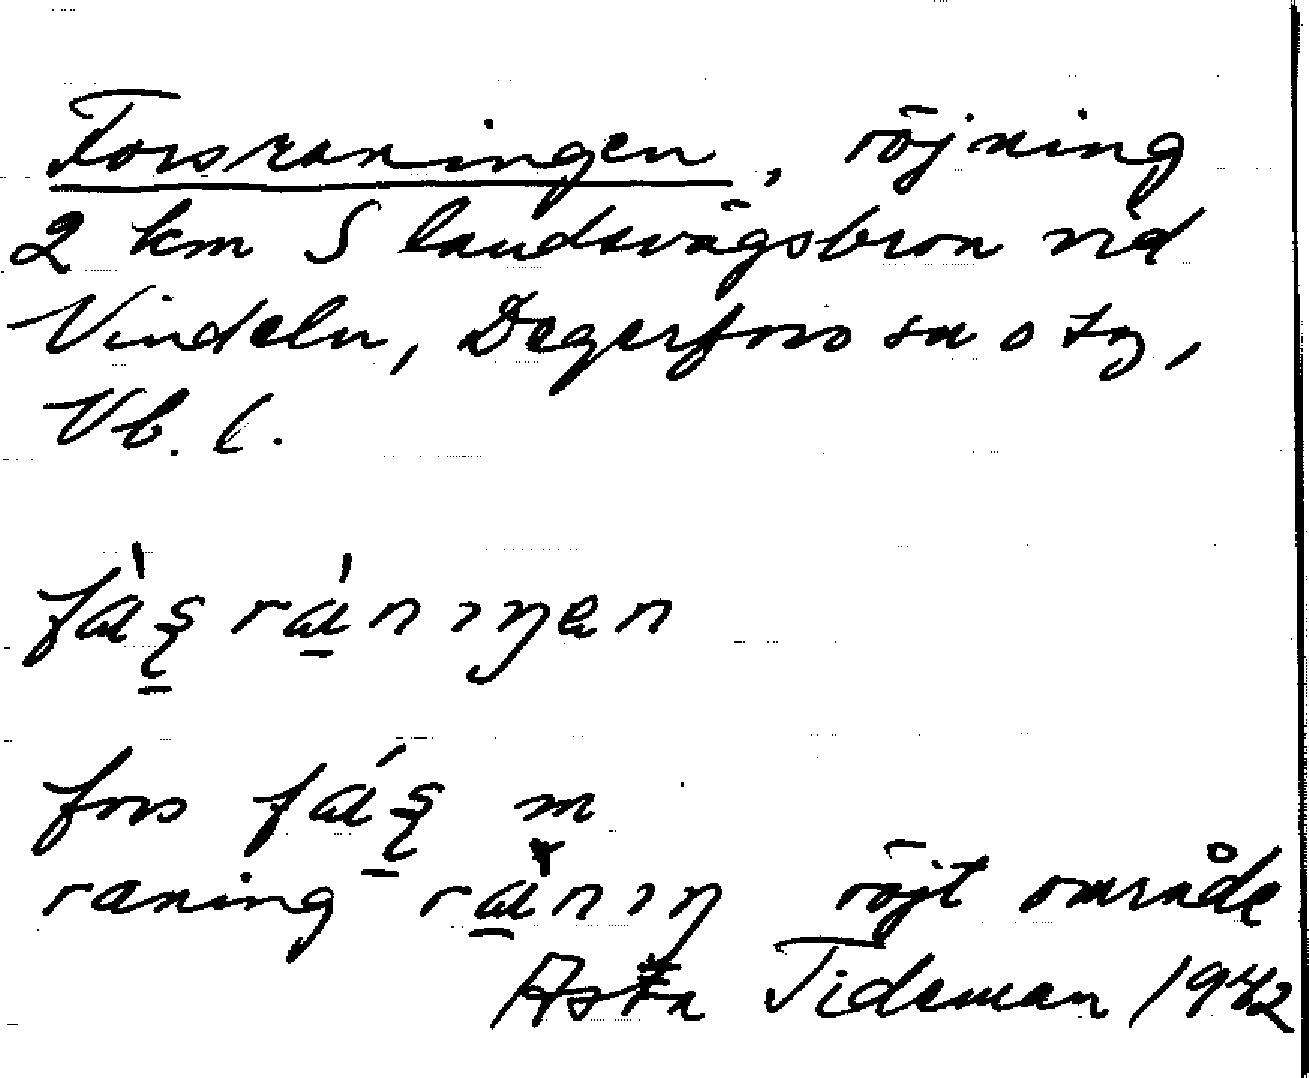 Forsraningen, röjning
2 km S landsvägsbron vid
Vindeln, Degerfors sn o tg,
Vb. l.
fors m
raning röjt område
Asta Tideman 1942